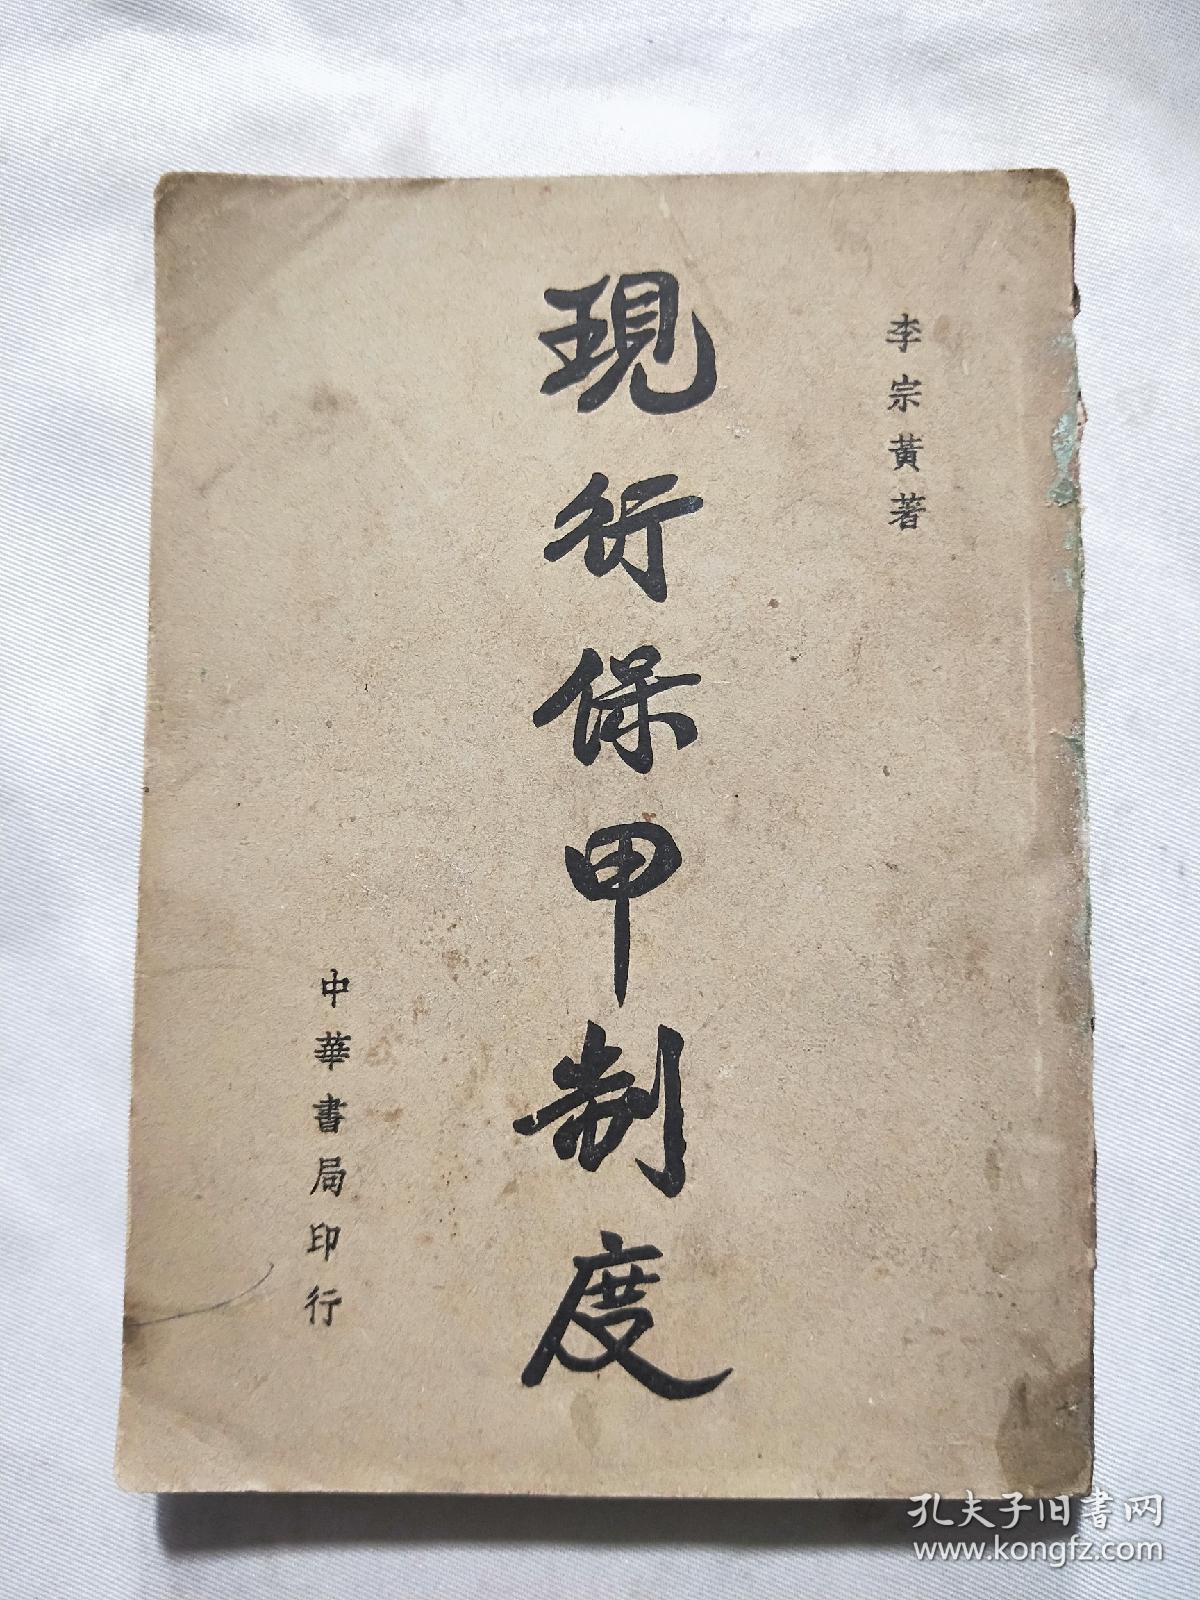 李宗黃著
現行保甲制度
中華書局印行
孔夫子旧書网
www.kongfz.com